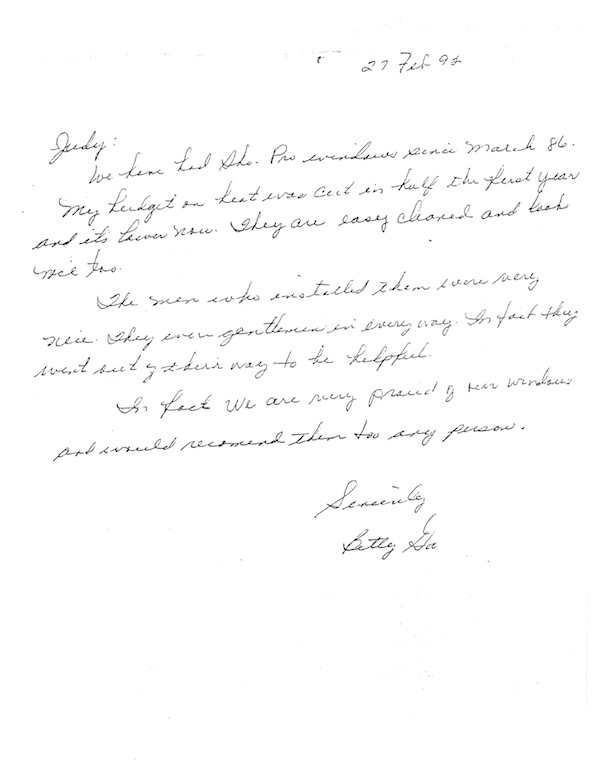 27 Feb 92
Judy:
We have had Sho. Pro windows since March 86.
My budget on heat was cut in half the first year
and its lower now. They are easy cleaned and look
nice too.
The men who installed them were very
nice. They were gentlemen in every way. In fact they
went out of their way to be helpful.
In fact we are very proud of our windows
and would recomend them too any person.
Sincerely
Betty